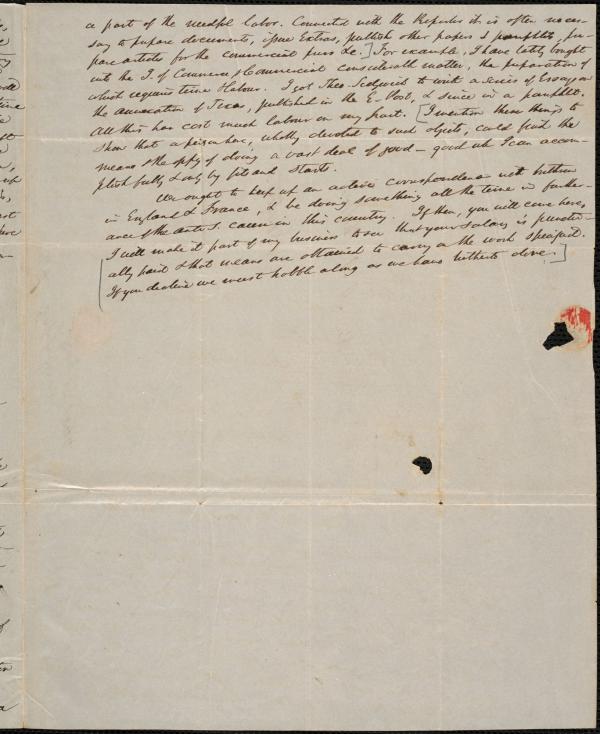 a part of the needful labor. Connected with the Reporter it is often neces-
sary to prepare documents, issue Extras, publish other papers & pamphlets, pre-
pare articles for the commercial press &c.] For example, I have lately bought
into the J. of Commerce & Commercial considerable matter, the preparation of
which requires time & labour. I got Theo. Sedgwick to write a series of Essays on
the annexation of Texas, published in the E. Post, & since in a pamphlet.
All this has cost much labour on my part. [I mention these things to
show that a person here, wholly devoted to such objects, could find the
means & the oppy of doing a vast deal of good – good wh I can accom-
plish partly & only by fits and starts.
We ought to keep up an active correspondence with brethren
in England & France, & be doing something all the time in further-
ance of the anti S. cause in this country. If then, you will come here,
I will make it part of my business to see that your salary is punctu-
ally paid & that means are obtained to carry on the work specified.
If you decline we must hobble along as we have hitherto done.]